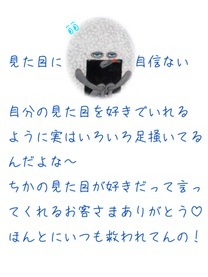 見た目に 自信ない
自分の見た目を好きでいれる
ように実はいろいろ足掻いてる
んだよな〜
ちかの見た目が好きだって言っ
てくれるお客さまありがとう♡
ほんとにいつも救われてんの！